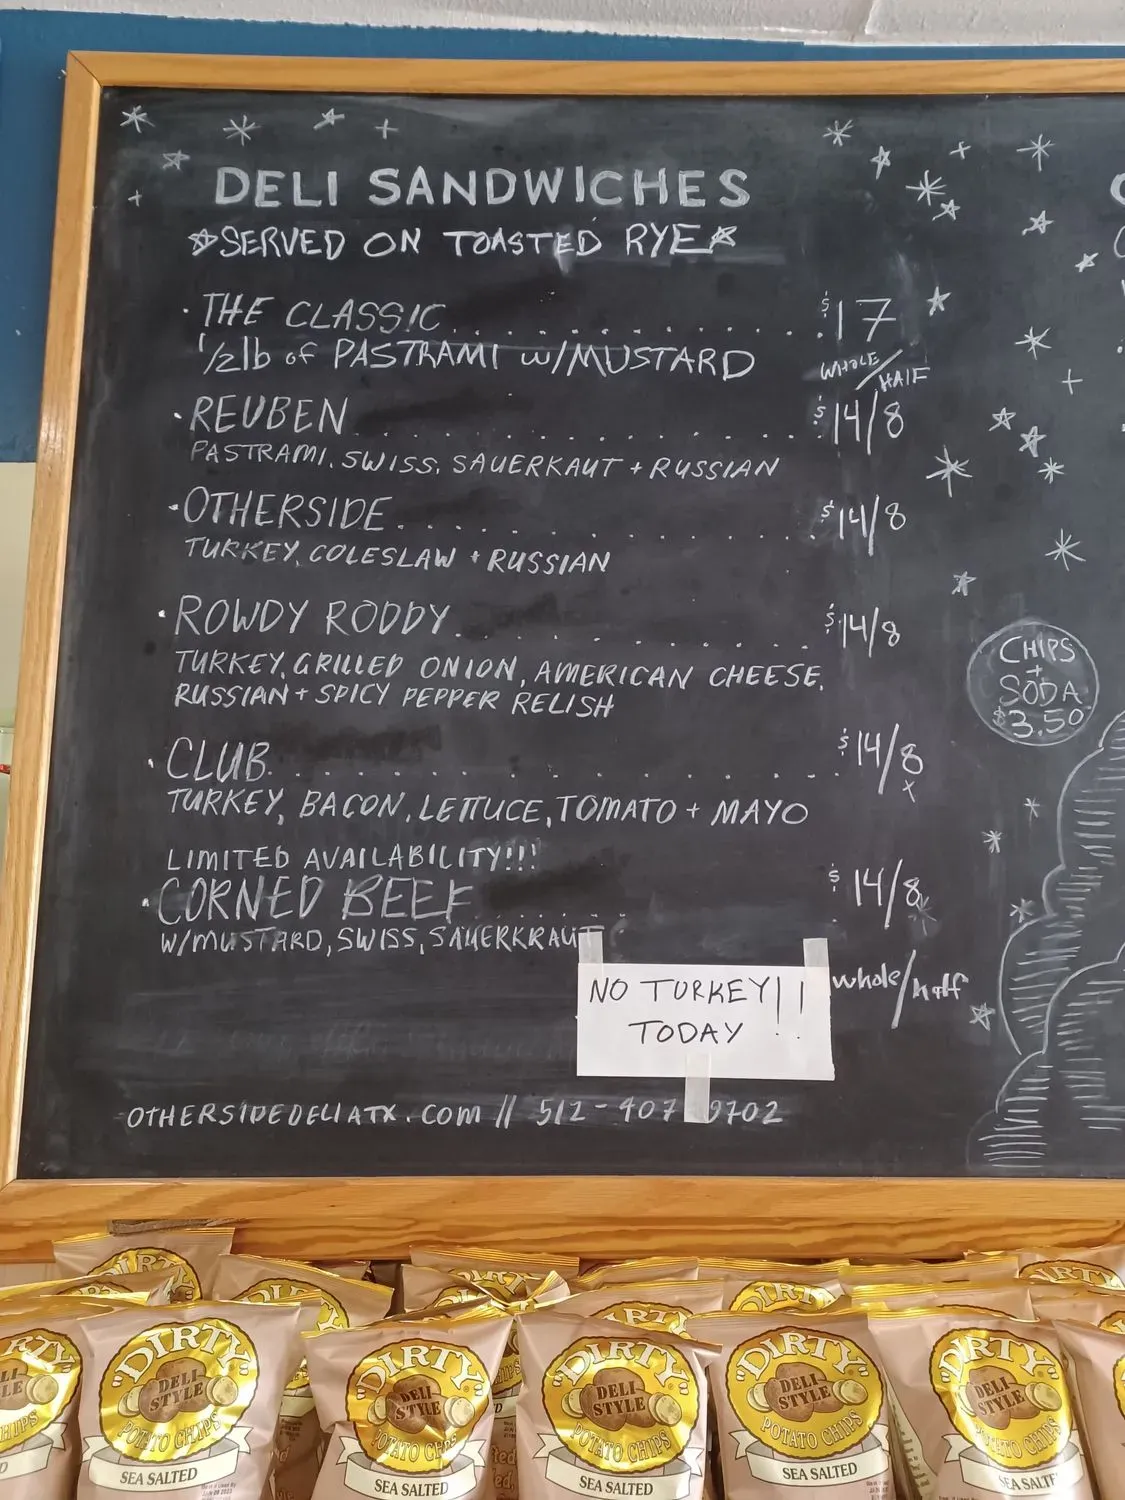 DELI SANDWICHES
SERVED ON TOASTED RYE
· THE CLASSIC . . . . . . . . . . . . . . $17
1/2lb of PASTRAMI w/MUSTARD
WHOLE/HALF
· REUBEN . . . . . . . . . . . . . . $14/8
PASTRAMI, SWISS, SAUERKAUT + RUSSIAN
· OTHERSIDE . . . . . . . . . . . . . . $14/8
TURKEY, COLESLAW + RUSSIAN
· ROWDY RODDY . . . . . . . . . . . $14/8
TURKEY, GRILLED ONION, AMERICAN CHEESE,
RUSSIAN + SPICY PEPPER RELISH
CHIPS
+
SODA
$3.50
· CLUB . . . . . . . . . . . . . . $14/8
TURKEY, BACON, LETTUCE, TOMATO + MAYO
LIMITED AVAILABILITY!!!
· CORNED BEEF . . . . . . . . $14/8
W/MUSTARD, SWISS, SAUERKRAUT
whole/half
NO TURKEY!!
TODAY
OTHERSIDEDELIATX.COM // 512-407 9702
"DIRTY"
"DIRTY"
DELI
STYLE
POTATO CHIPS
SEA SALTED
"DIRTY"
DELI
STYLE
POTATO CHIPS
SEA SALTED
"DIRTY"
DELI
STYLE
POTATO CHIPS
SEA SALTED
"DIRTY"
DELI
STYLE
POTATO CHIPS
SEA SALTED
"DIRTY"
DELI
STYLE
POTATO CHIPS
SEA SALTED